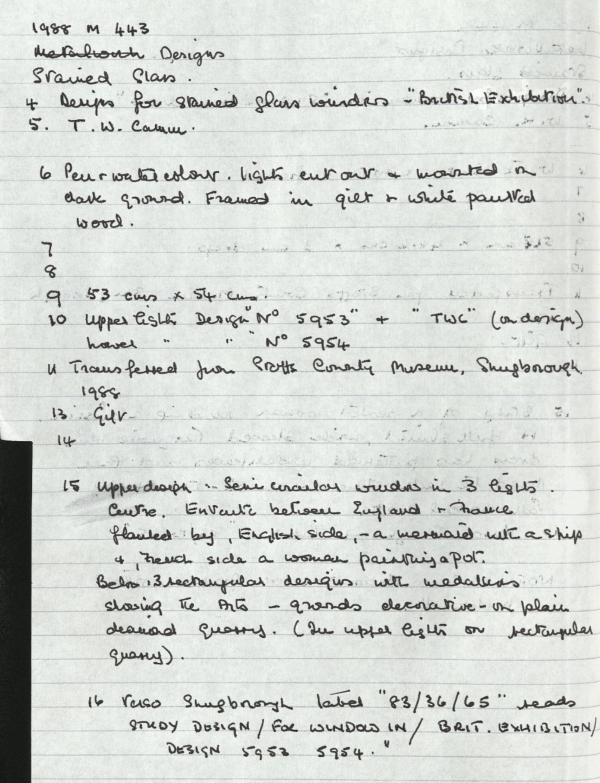 1988 M 443
Metalwork Designs
Stained Glass.
4 Designs for stained glass windows - "British Exhibition".
5. T.W. Camm.
6 Pen + watercolour. lights cut out + mounted on
dark ground. Framed in gilt + white painted
wood.
7
8
9 53 cms x 54 cms.
10 Upper lights Design "Nº 5953" + "TWC" (on design)
Lower " " "Nº 5954
11 Transferred from Staffs County Museum, Shugborough
1988
13 Gift
14
15 Upper design :- Semi circular window in 3 lights.
Centre. Entente between England + France
flanked by, English side, - a mermaid with a ship
+, French side a woman painting a pot.
Below :3 rectangular designs with medallions
showing the Arts - grounds decorative - on plain
diamond quarry. (The upper lights on rectangular
quarry).
16 Verso Shugborough label "83/36/65" reads
STUDY DESIGN / FOR WINDOW IN / BRIT. EXHIBITION/
DESIGN 5953 5954."